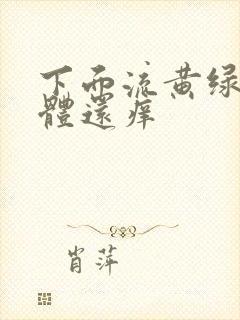 下面流黄绿
體還痒
肖萍